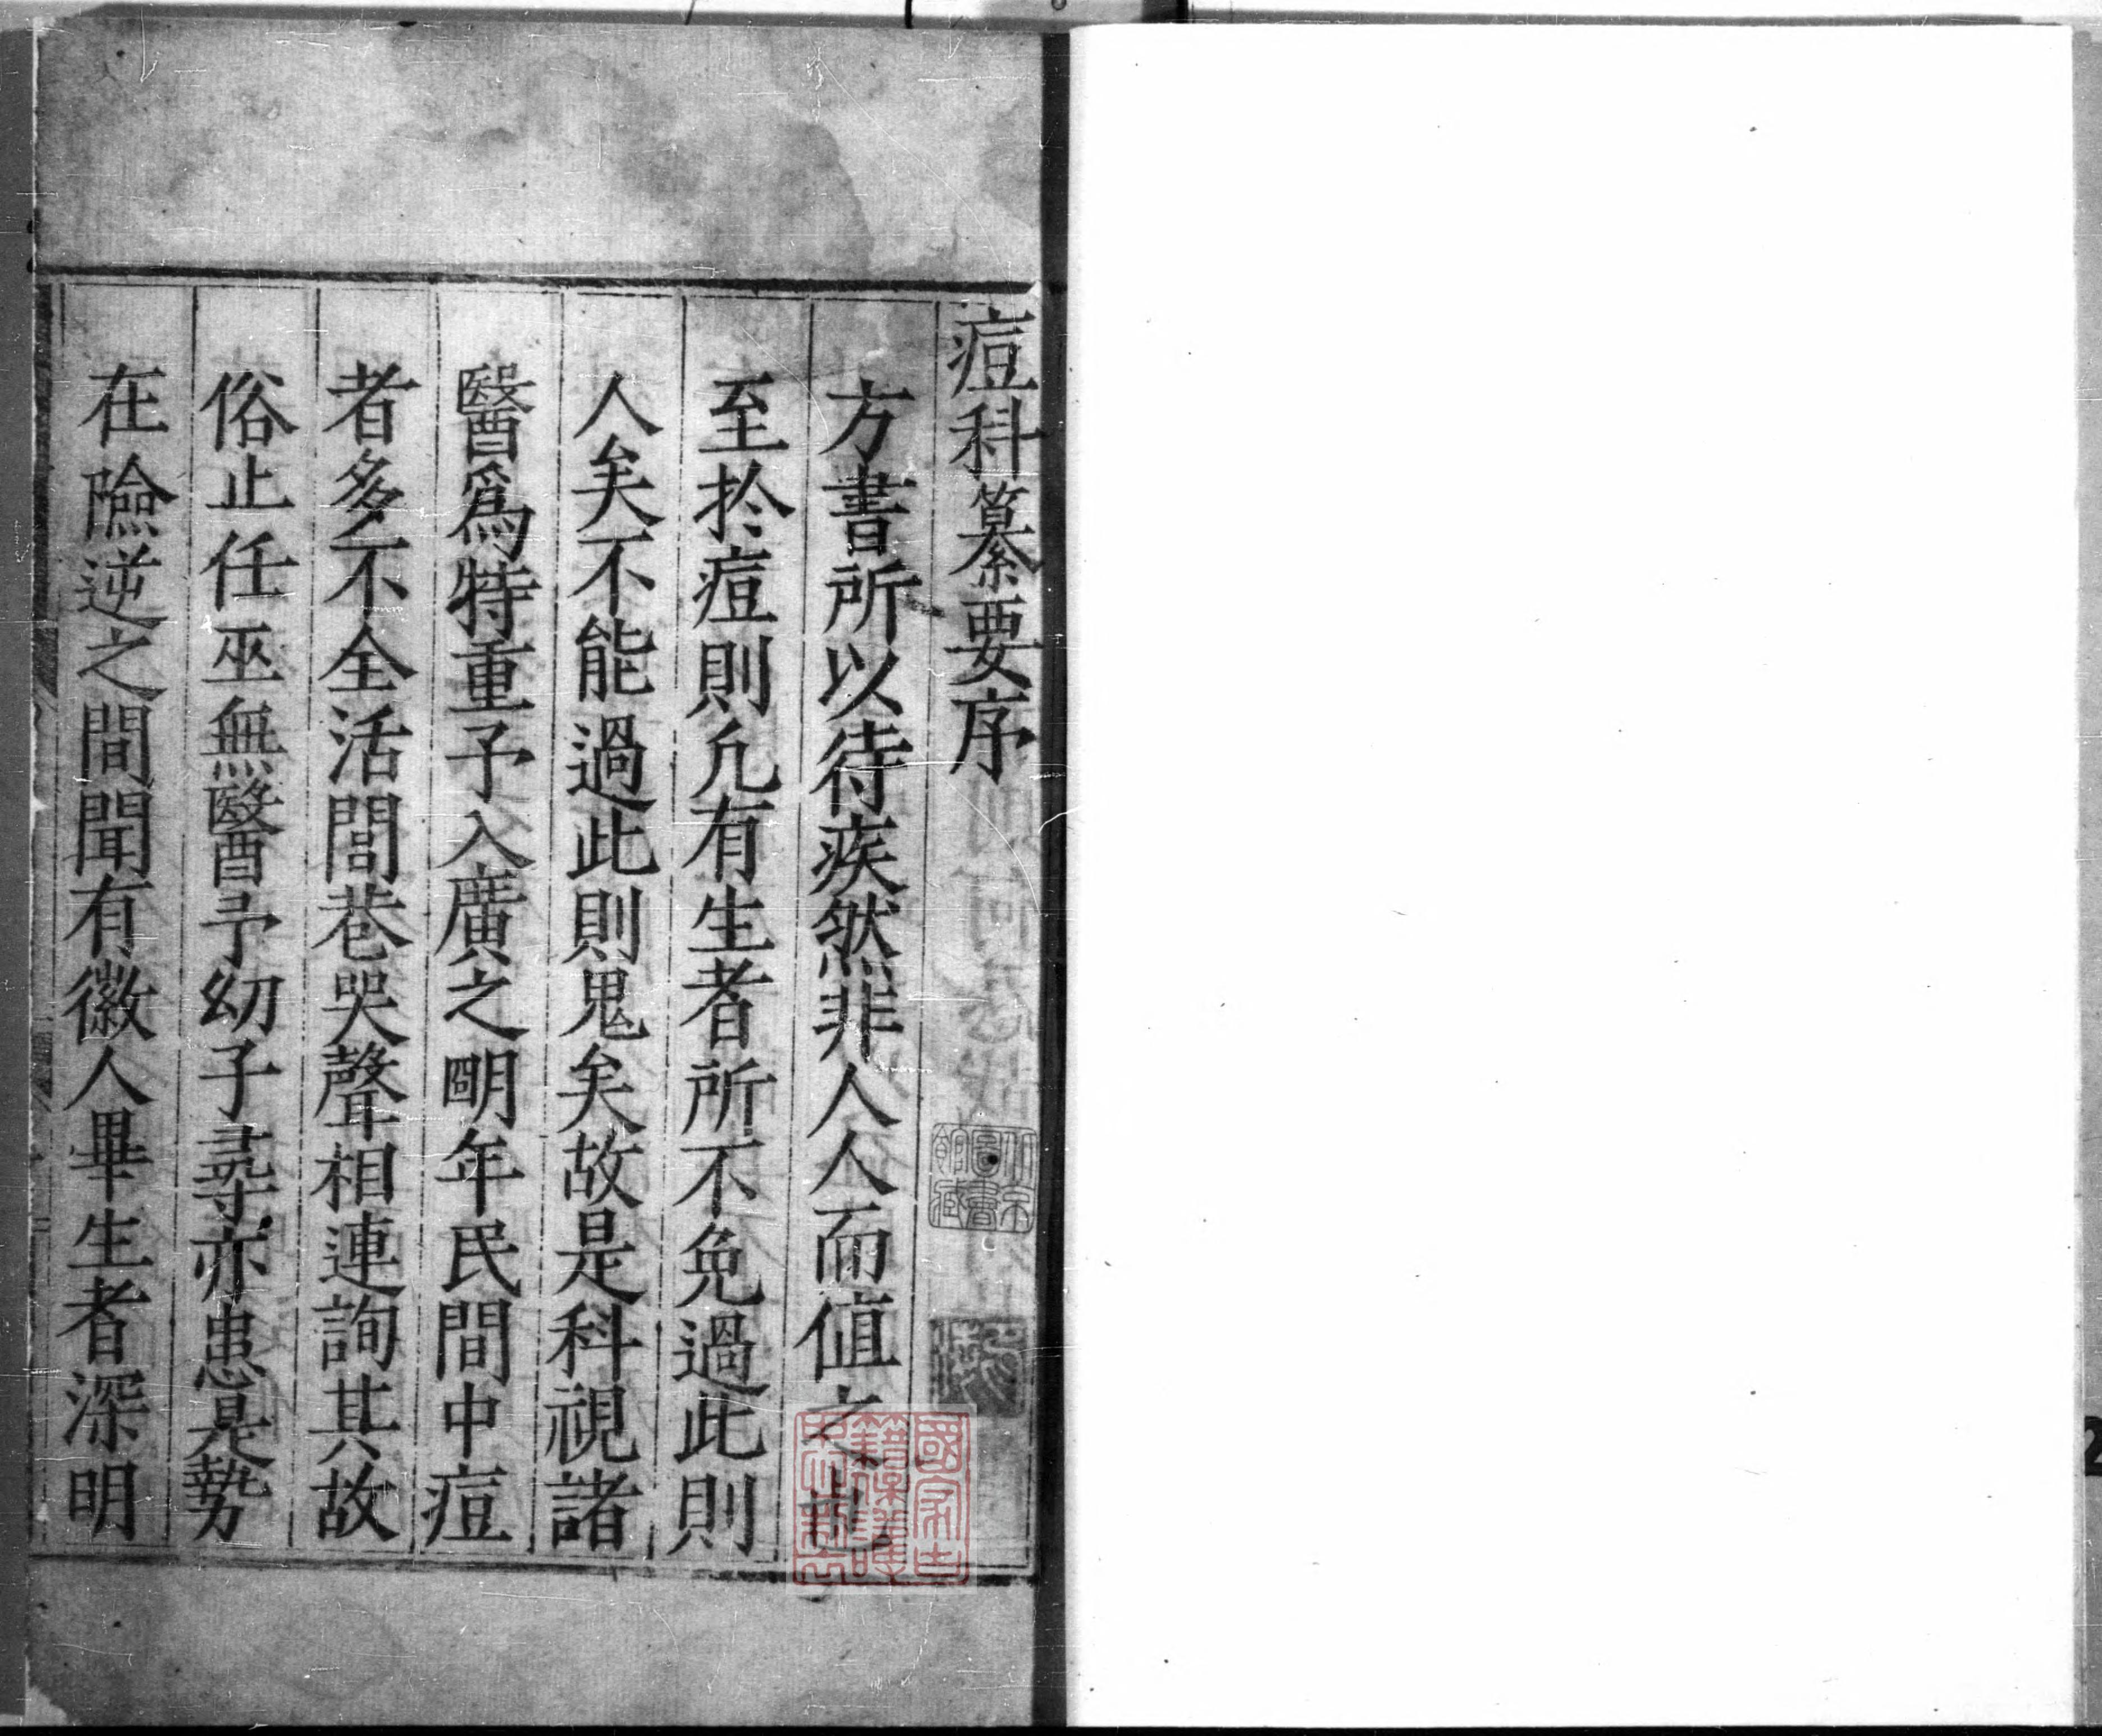 痘科纂要序
方書所以待疾然非人人而值之也
至扵痘則凢有生者所不免過此則
人矣不能過此則鬼矣故是科視諸
醫爲特重予入廣之明年民間中痘
者多不全活閭巷哭聲相連詢其故
俗止任巫無醫予幼子尋亦患是勢
在險逆之間聞有徽人畢生者深明
北京圖書館藏
國家古籍保護中心